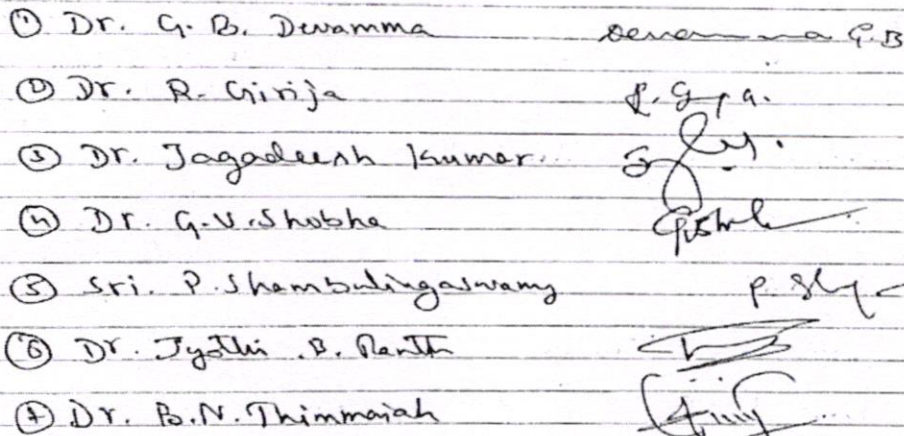 ① Dr. G. B. Devamma Devamma G.B
② Dr. R. Girija
③ Dr. Jagadeesh Kumar.
④ Dr. G.V. Shobha
⑤ Sri. P. Shambulingaswamy
⑥ Dr. Jyothi .B.
⑦ Dr. B.N. Thimmaiah